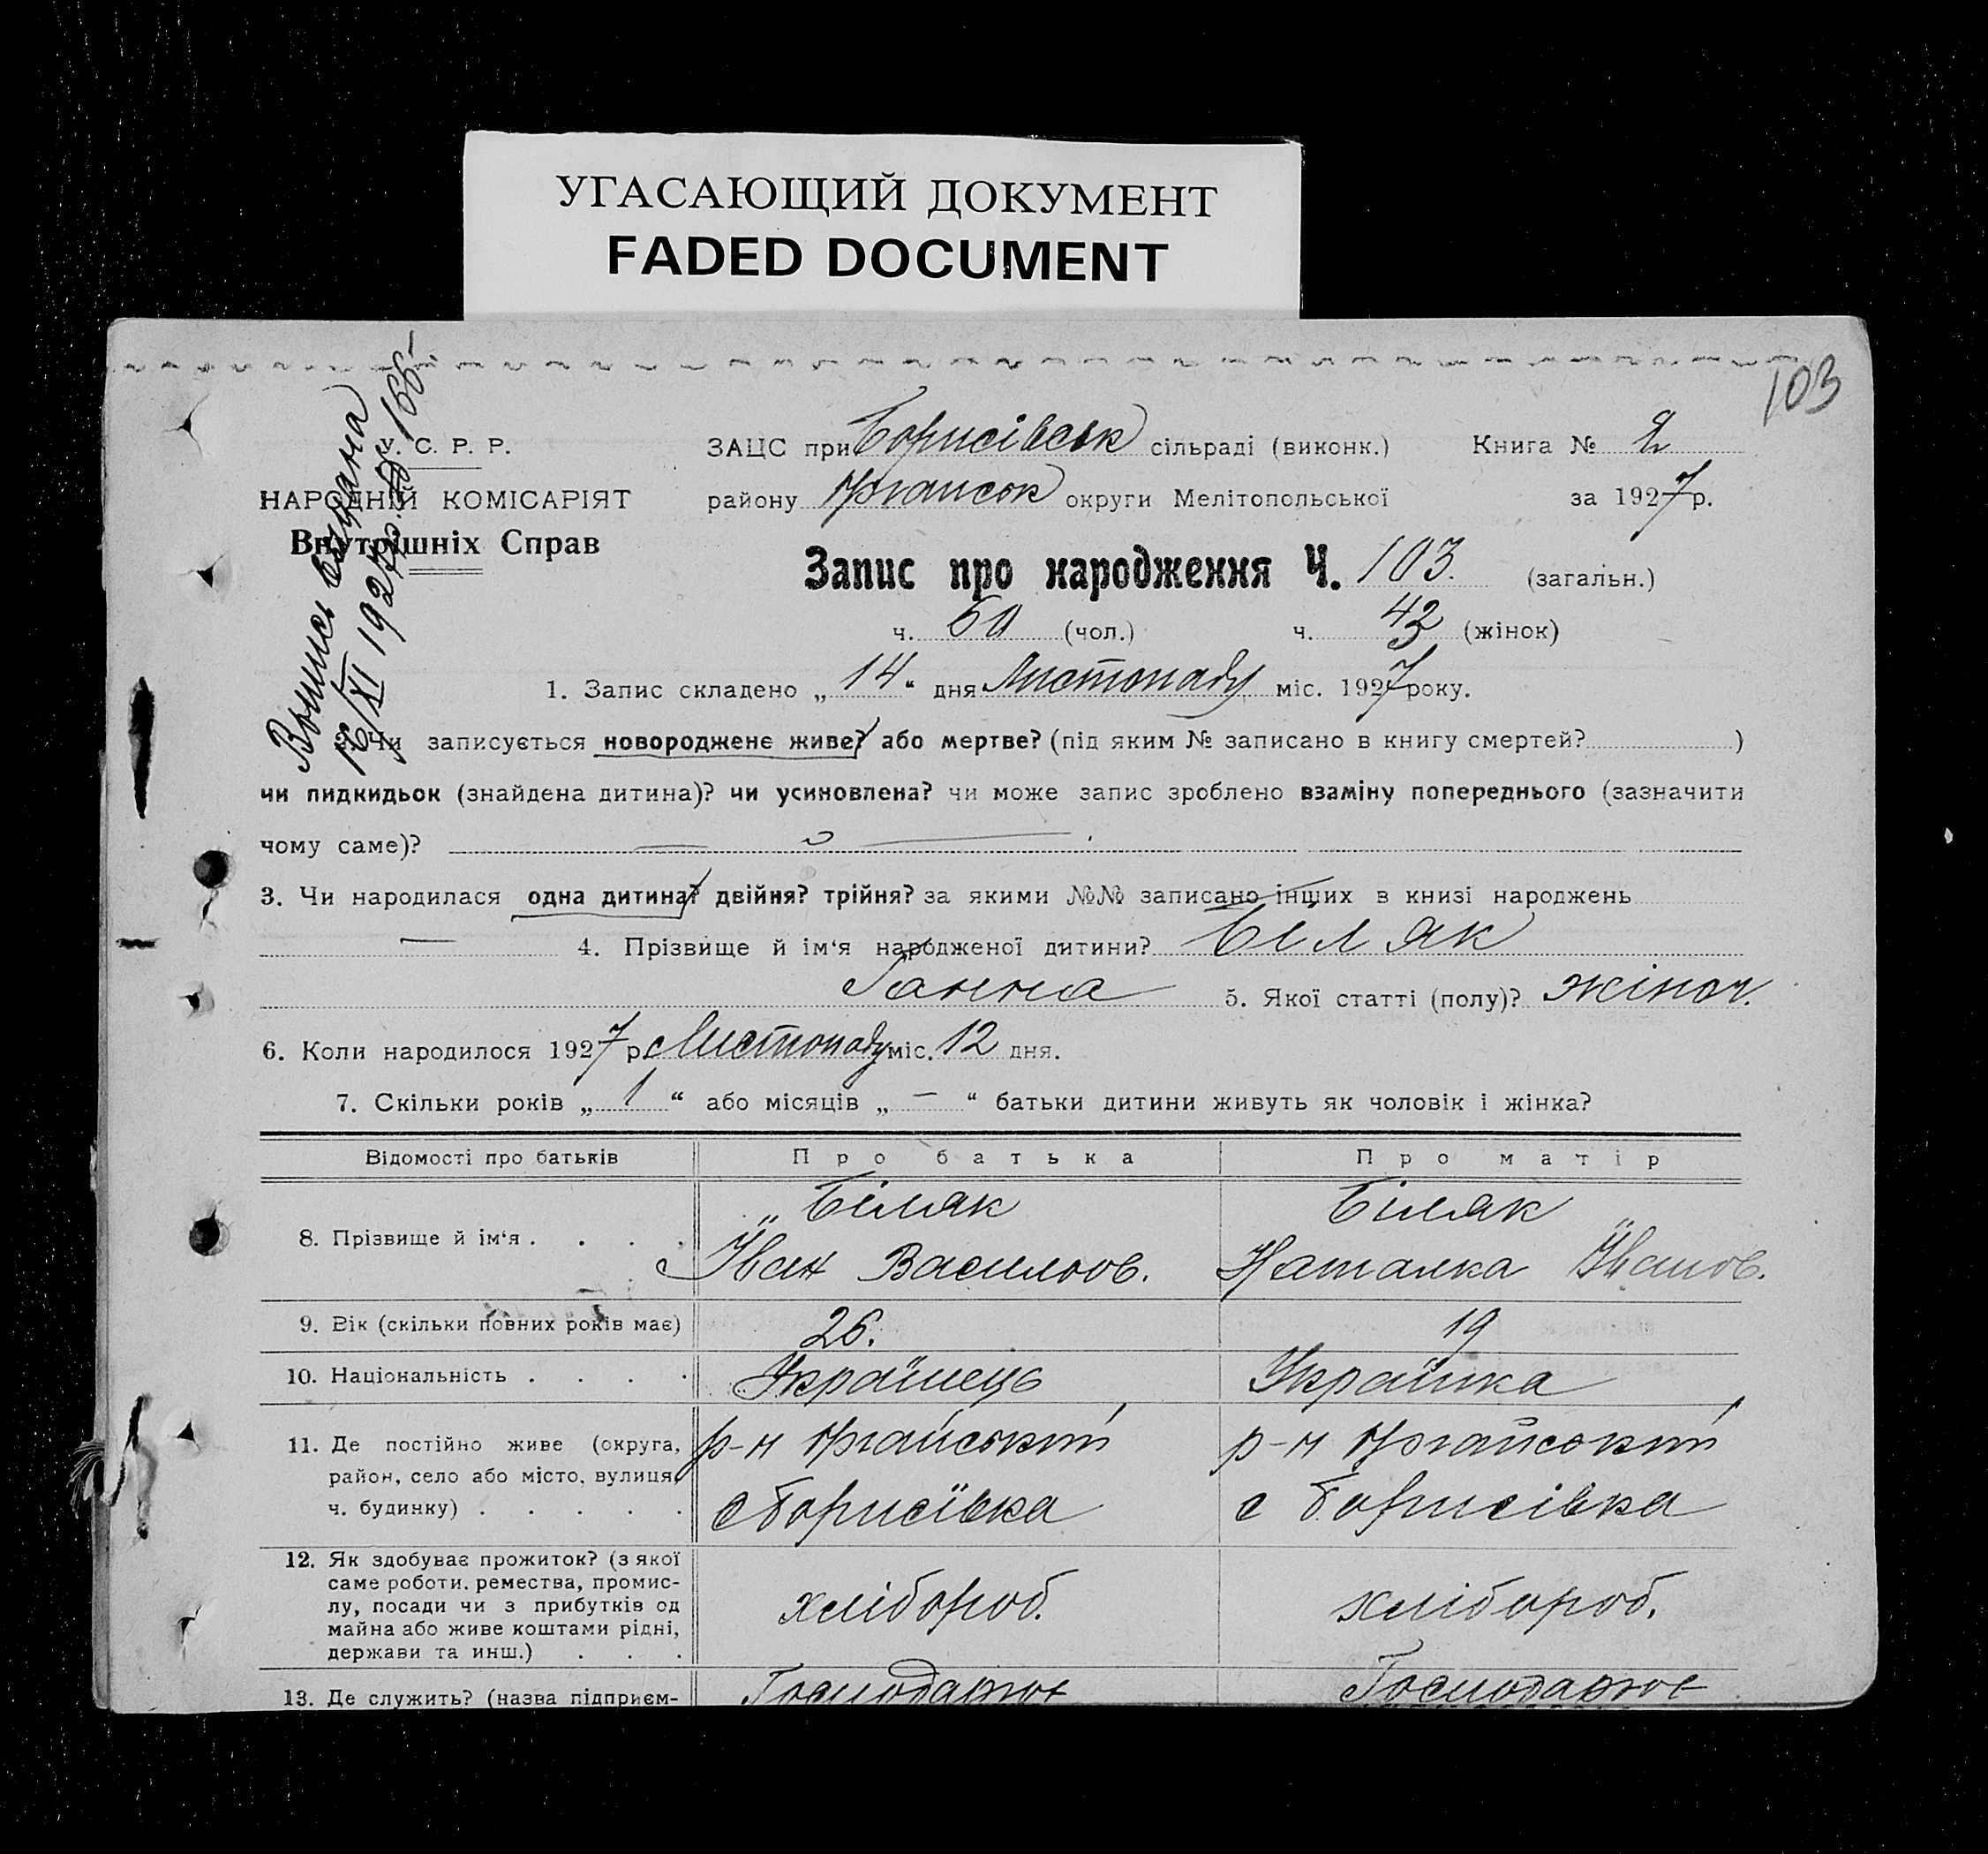 УГАСАЮЩИЙ ДОКУМЕНТ
FADED DOCUMENT
103
Випись видана
16/XI 1927 р. № 166
У. С. Р. Р.
НАРОДНІЙ КОМІСАРІЯТ
Внутрішніх Справ
ЗАЦС при Борисівськ сільраді (виконк.) Книга № 2
району округи Мелітопольської за 1927 р.
Запис про народження Ч. 103. (загальн.)
ч. 60 (чол.) ч. 43 (жінок)
1. Запис складено „14“ дня Листопаду міс. 1927 року.
2. Чи записується новороджене живе? або мертве? (під яким № записано в книгу смертей? )
чи пидкидьок (знайдена дитина)? чи усиновлена? чи може запис зроблено взаміну попереднього (зазначити
чому саме)? —
3. Чи народилася одна дитина? двійня? трійня? за якими №№ записано інших в книзі народжень
— 4. Прізвище й ім‘я народженої дитини? Біляк
Ганна 5. Якої статті (полу)? жіноч.
6. Коли народилося 1927 р. Листопаду міс. 12 дня.
7. Скільки років „1“ або місяців „—“ батьки дитини живуть як чоловік і жінка?
Відомості про батьків Про батька Про матір
8. Прізвище й ім‘я . . . . Біляк Біляк
Їван Васильов. Наталка Їванов.
9. Вік (скільки повних років має) 26. 19
10. Національність . . . . Українець Українка
11. Де постійно живе (округа, р-н р-н
район, село або місто, вулиця,
ч. будинку) . . . . . с Борисївка с Борисівка
12. Як здобуває прожиток? (з якої
саме роботи, ремества, промис-
лу, посади чи з прибутків од хлібороб. хлібороб.
майна або живе коштами рідні,
держави та инш.) . . .
13. Де служить? (назва підприєм- Господарює Господарює